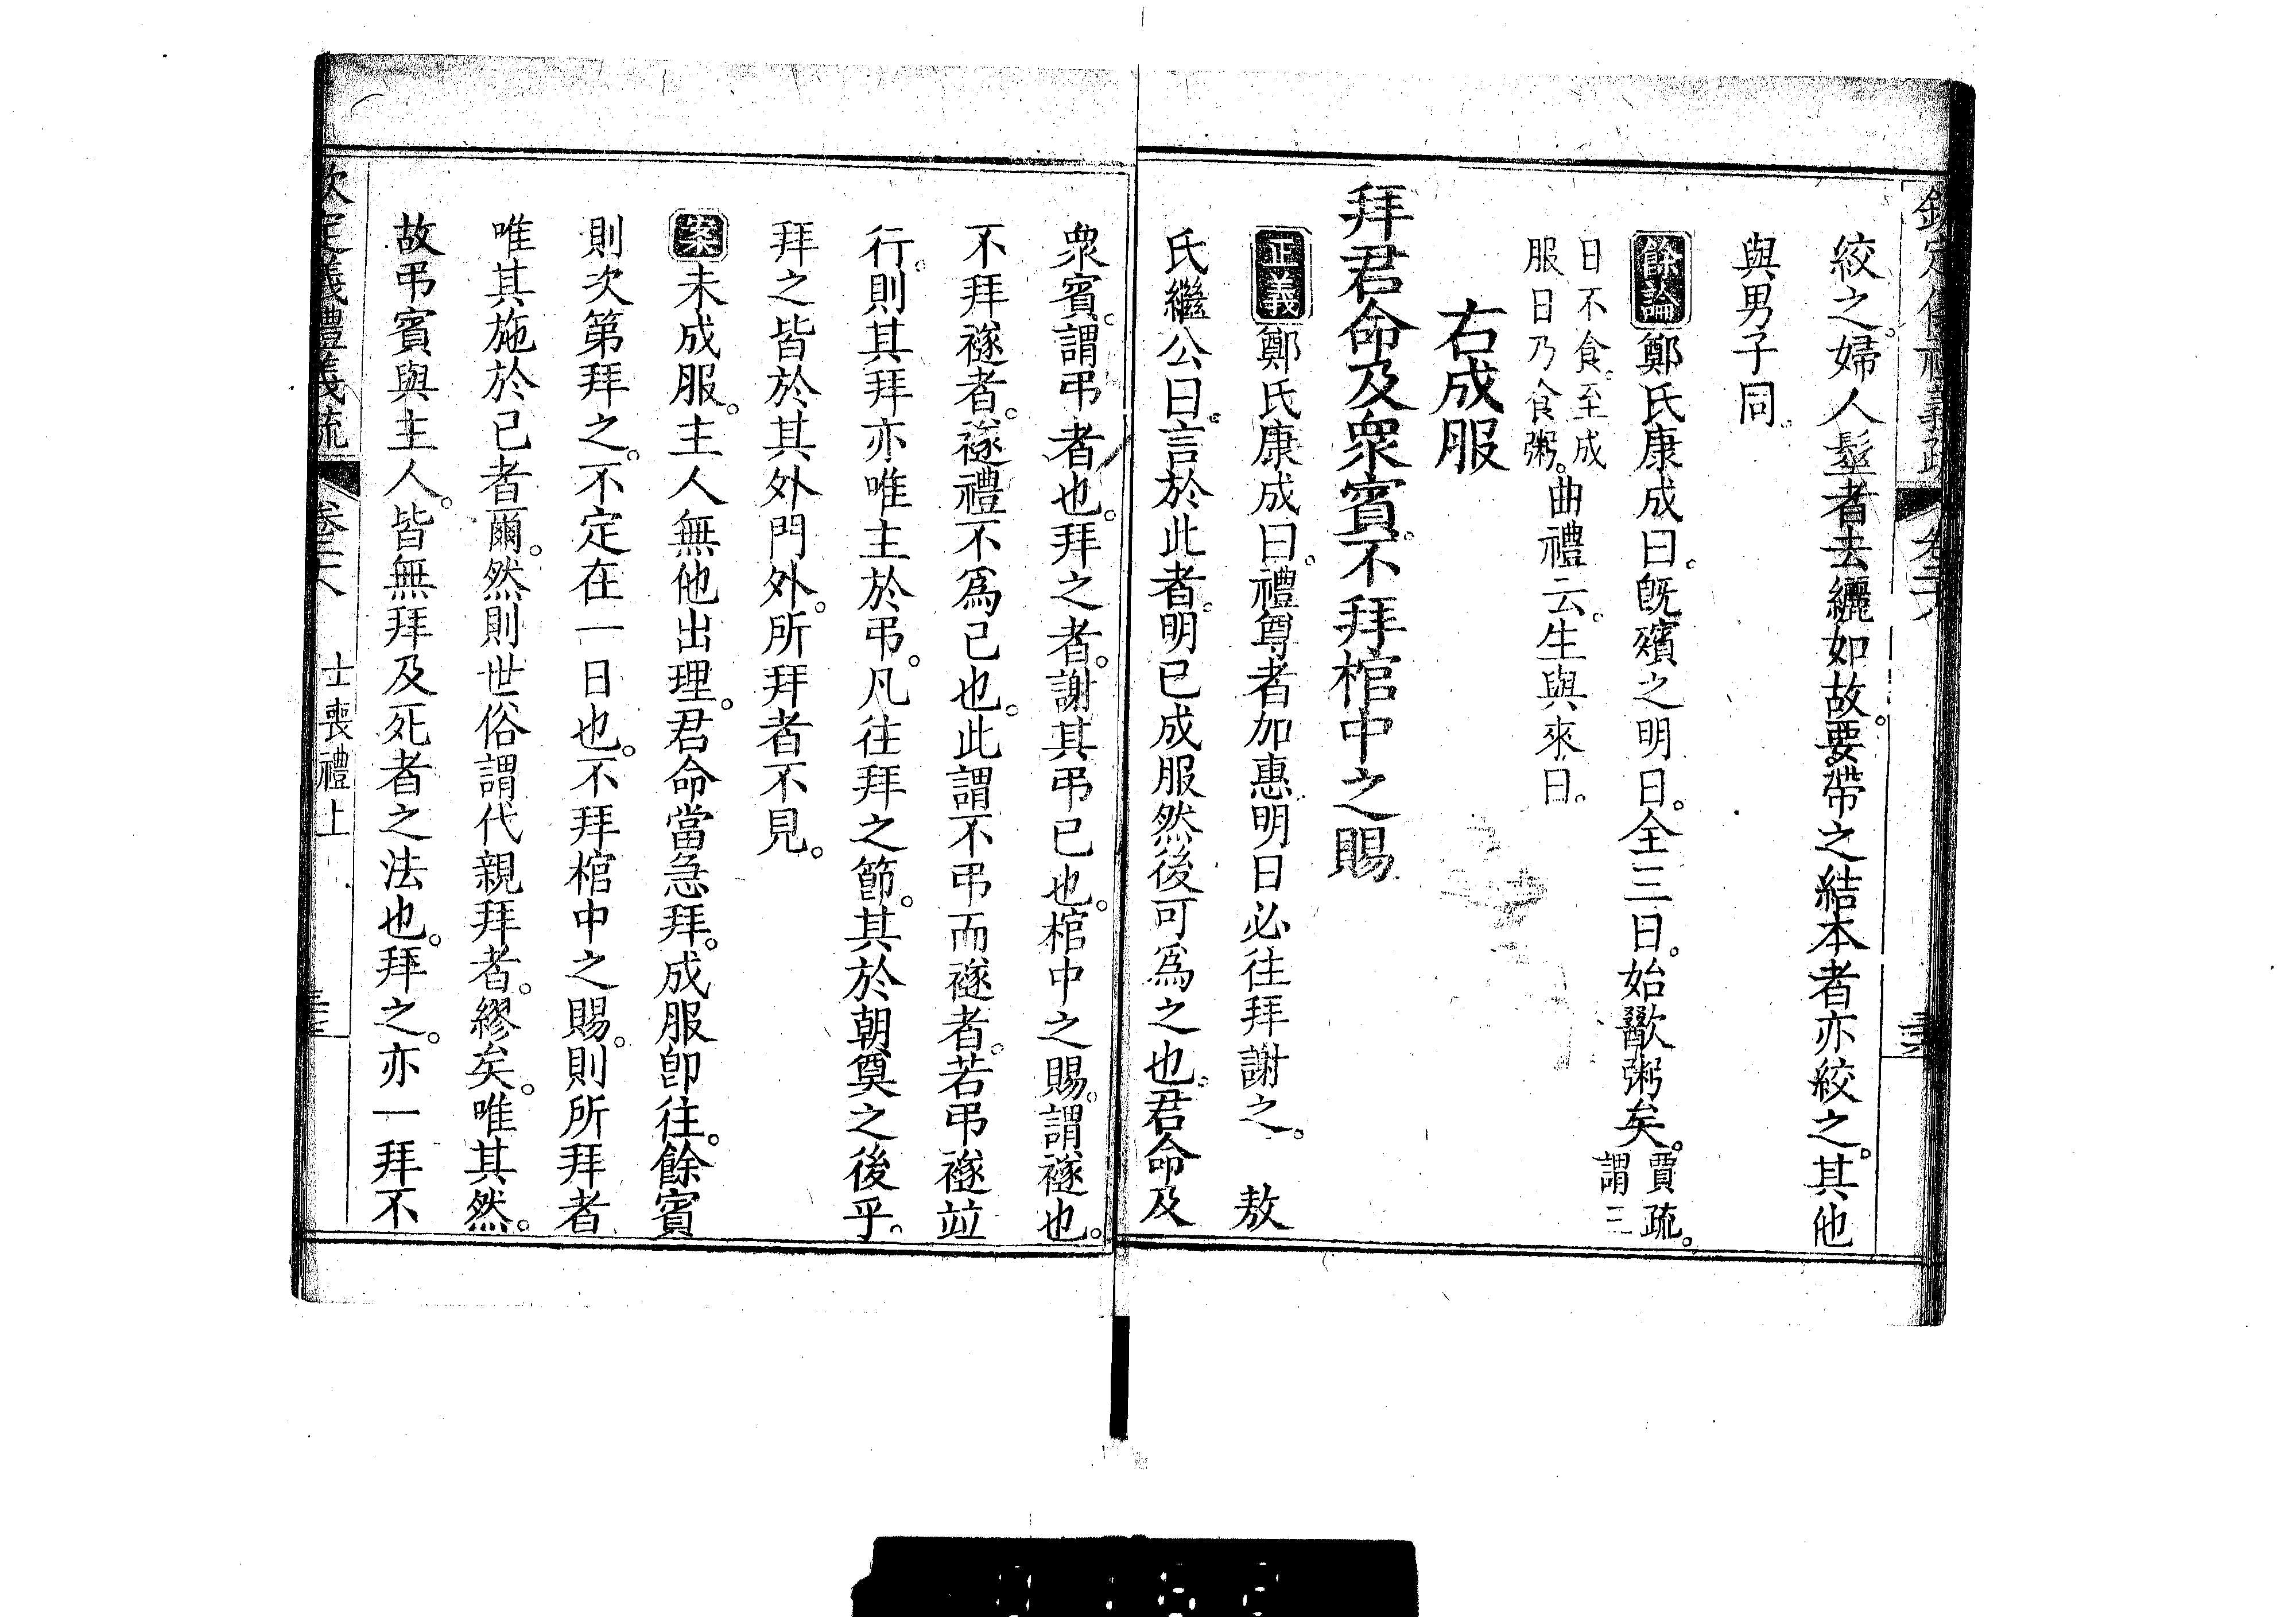 欽定儀禮義疏 卷二六
絞之。婦人髽者去纚如故。要帶之結本者亦絞之。其他
與男子同。
餘論鄭氏康成曰。旣殯之明日。全三日。始歠粥矣。賈疏。謂三
日不食。至成服日乃食粥。曲禮云。生與來日。
右成服
拜君命及衆賓。不拜棺中之賜
正義鄭氏康成曰。禮尊者加惠明日必往拜謝之。 敖
氏繼公曰。言於此者。明已成服然後可爲之也。君命及
衆賓。謂弔者也。拜之者。謝其弔己也。棺中之賜。謂襚也。
不拜襚者。襚禮不爲己也。此謂不弔而襚者。若弔襚竝
行。則其拜亦唯主於弔。凡往拜之節。其於朝奠之後乎。
拜之皆於其外門外。所拜者不見。
案未成服。主人無他出理。君命當急拜。成服卽往。餘賓
則次第拜之。不定在一日也。不拜棺中之賜。則所拜者
唯其施於己者爾。然則世俗謂代親拜者。繆矣。唯其然。
故弔賓與主人。皆無拜及死者之法也。拜之。亦一拜不
欽定儀禮義疏 卷二六 士喪禮上